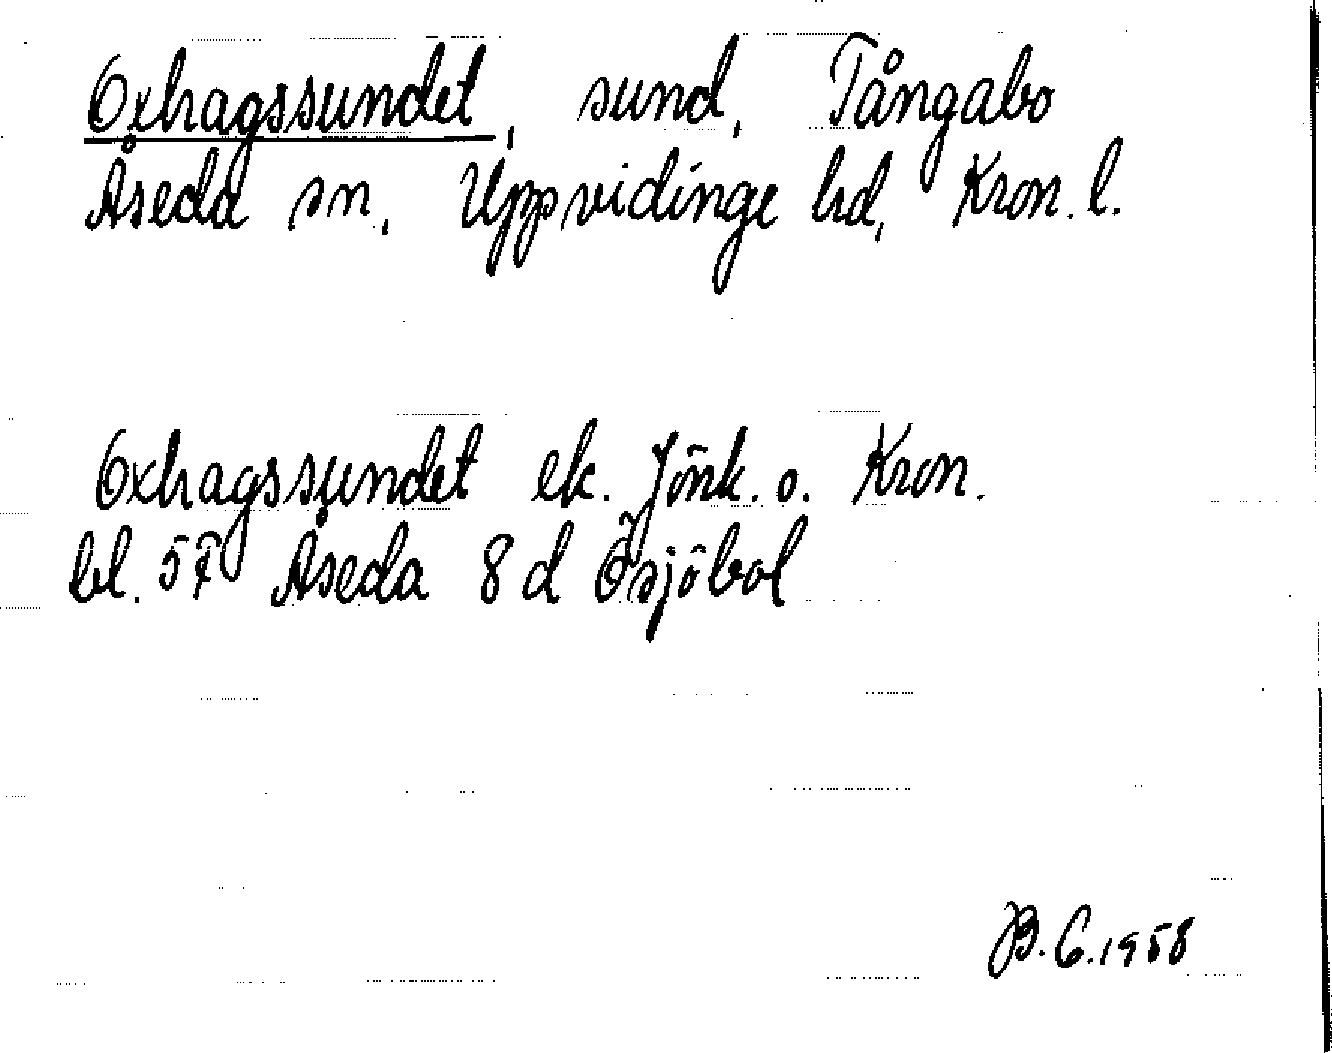 Oxhagssundet, sund, Tångabo
Åseda sn, Uppvidinge hd, Kron. l.
Oxhagssundet ek. Jönk. o. Kron.
bl. 57 Åseda 8 d Ösjöbol
B. C. 1958